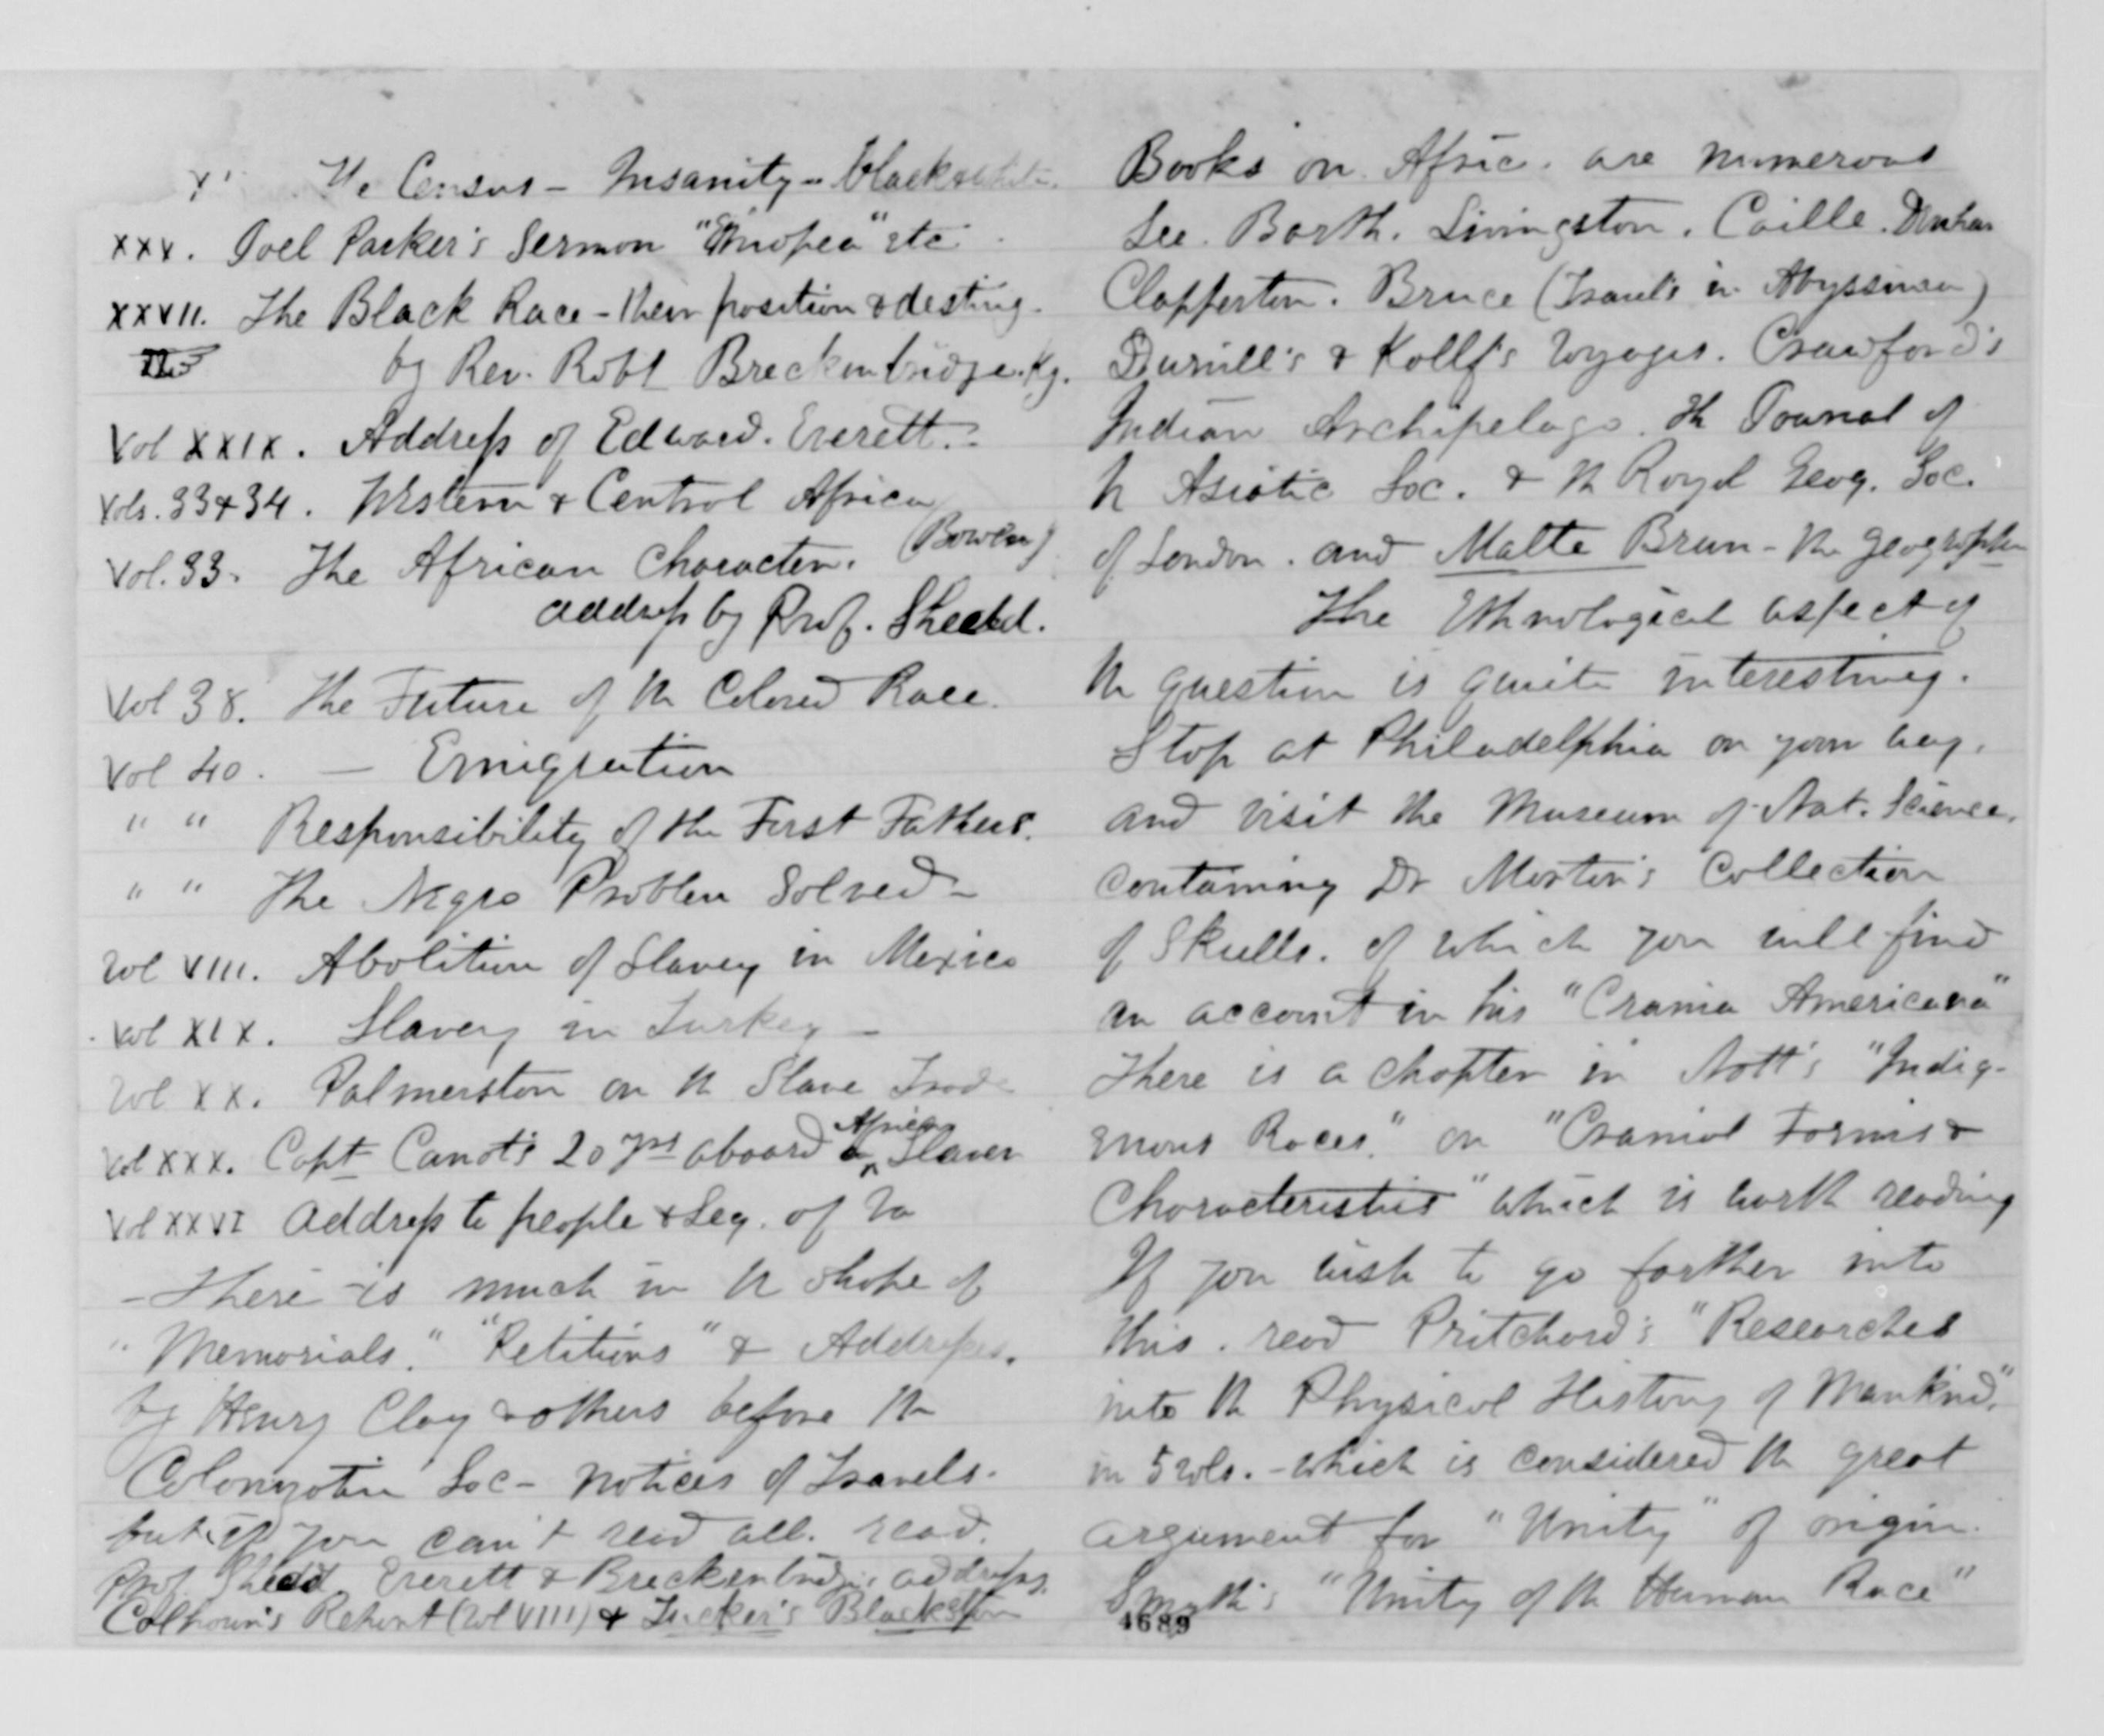 The Census - Insanity - blacks
XXV. Joel Parker's Sermon " " etc
XXVII. The Black Race - their position & destiny.
by Rev. Robt Breckenbridge. Ky.
Vol XXIX. Address of Edward. Everett.
Vols. 33 & 34. Western & Central Africa
(Bowen)
Vol. 33. The African Character.
address by Prof. Shedd.
Vol 38. The Future of th Colored Race.
Vol 40. — Emigration
" " Responsibility of the First Fathers.
" " The Negro Problem Solved -
Vol VIII. Abolition of Slavery in Mexico
Vol XIX. Slavery in Turkey -
Vol XX. Palmerston on th Slave Trade
African
Vol XXX. Capt Canot's 20 yrs aboard a Slaver
Vol XXVI Address to people & Leg. of Va
- There is much in th shape of
"Memorials." "Petitions" & Addresses.
by Henry Clay & others before th
Colonization Soc - notices of Travels.
but if you can't read all. read.
Prof. Shedd, Everett & Breckenbridge's addresses,
Calhoun's Report (Vol VIII) & Tucker's Blackstone
Books on Afric. are numerous
See. Barth. Livingston. Caille. Denham
Clapperton. Bruce (Travels in Abyssinia)
& Kolff's Voyages. Crawford's
Indian Archipelago. Th Journal of
th Asiatic Soc. & th Royal Geog. Soc.
of London. and Malte Brun - the geographer
The Ethnological aspect of
th question is quite interesting.
Stop at Philadelphia on your way.
and visit the Museum of Nat. Science.
containing Dr Morton's Collection
of Skulls. of which you will find
an account in his "Crania Americana"
There is a chapter in Nott's "Indig-
enous Races." on "Cranial Forms &
Characteristics" which is worth reading
If you wish to go farther into
this. read Pritchard's "Researches
into th Physical History of Mankind,"
in 5 vols. - which is considered th great
argument for "Unity" of origin.
Smyth's "Unity of th Human Race"
4689